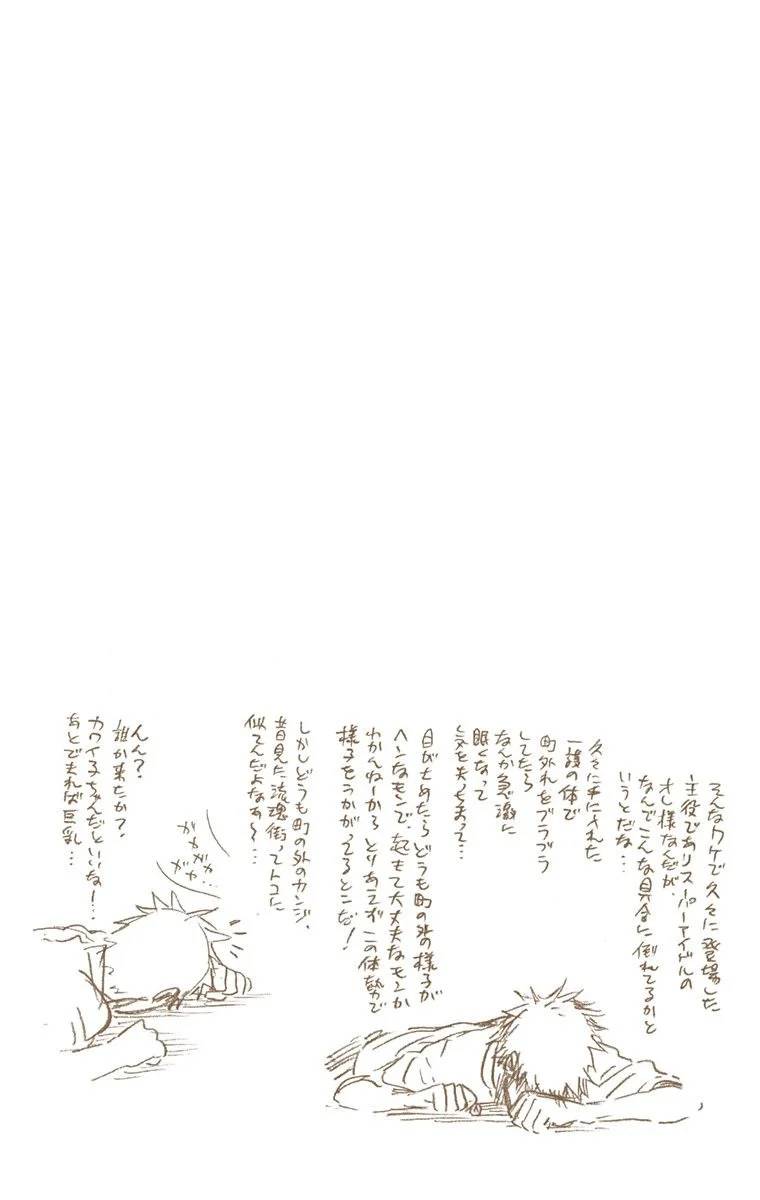 そんなワケで久々に登場した
主役でありスーパーアイドルの
オレ様なんだが、
なんでこんな具合に倒れてるかと
いうとだな…
久々に手にされた
一護の体で
町外れをブラブラ
してたら
なんか急激に
眠くなって
気を失っちまって…
目がさめたらどうも町の外の様子が
ヘンなモンで、起きて大丈夫なモンか
わかんねーから とりあえず この体勢で
様子をうかがってるとこだ!
しかしどうも町の外のカンジ、
昔見た流魂街ってトコに
似てんだよなあ〜…
ガヤ
ガヤ…
ガヤ
んん?
誰か来たか?
カワイ子ちゃんだといいなー…
あとできれば巨乳…